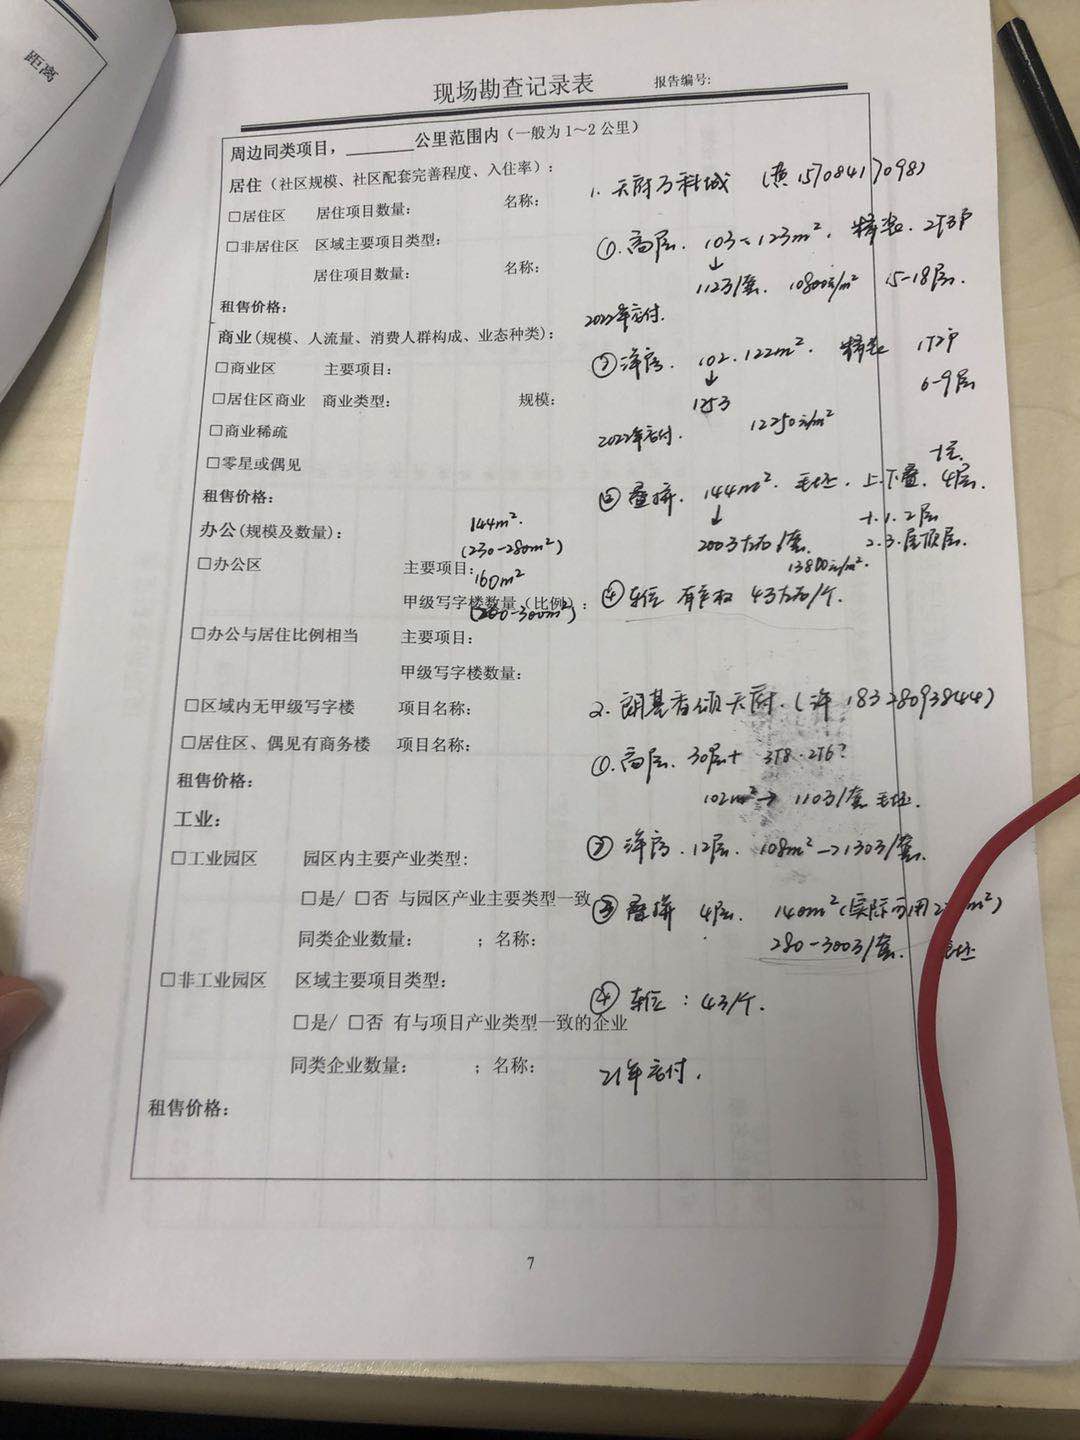 距离
现场勘查记录表 报告编号:
周边同类项目，______公里范围内（一般为1～2公里）
居住（社区规模、社区配套完善程度、入住率）:
□居住区 居住项目数量: 名称:
□非居住区 区域主要项目类型:
居住项目数量: 名称:
租售价格:
商业(规模、人流量、消费人群构成、业态种类):
□商业区 主要项目:
□居住区商业 商业类型: 规模:
□商业稀疏
□零星或偶见
租售价格:
办公(规模及数量):
□办公区 主要项目:
甲级写字楼数量（比例）:
□办公与居住比例相当 主要项目:
甲级写字楼数量:
□区域内无甲级写字楼 项目名称:
□居住区、偶见有商务楼 项目名称:
租售价格:
工业:
□工业园区 园区内主要产业类型:
□是/ □否 与园区产业主要类型一致
同类企业数量: ；名称:
□非工业园区 区域主要项目类型:
□是/ □否 有与项目产业类型一致的企业
同类企业数量: ；名称:
租售价格:
144m².
(230-280m²)
160m²
1. 天府万科城 (15708417098)
①.高层. 103~123m². 精装. 2T3户
↓
112万/套. 10800元/m² 15-18层.
2022年交付.
②洋房. 102.122m². 精装 1T2户
↓ 6-9层
125万
2022年交付. 12250元/m²
③叠拼. 144m². 毛坯. 上.下叠. 4层.
↓ 1.2层
200万左右/套. 2.3.层顶层.
13800元/m².
④车位 有产权 4万左右/个.
2. 朗基香颂天府. (许 18328093844)
①.高层. 30层+ 3T8.2T6?
102m²→110万/套 毛坯.
②洋房.12层. 108m²→130万/套.
③叠拼 4层. 140m²(实际可用
280-300万/套. 毛坯
④车位: 4万/个.
21年交付.
7